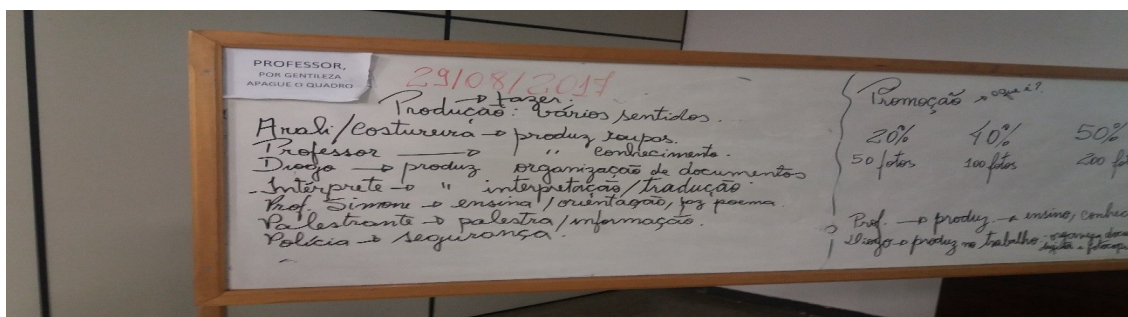 PROFESSOR,
POR GENTILEZA
APAGUE O QUADRO
29/08/2017
→ fazer.
Produção: vários sentidos.
Anali/costureira → produz roupas.
Professor → " conhecimento.
Diogo → produz organização de documentos
Intérprete → " interpretação/tradução
Prof. Simone → ensina/orientação, faz poema.
Palestrante → palestra/informação.
Polícia → segurança.
Promoção → oque é?
20% 40% 50%
50 fotos 100 fotos 200 fot
Prof. → produz → ensino, conhec
Diogo → produz no trabalho